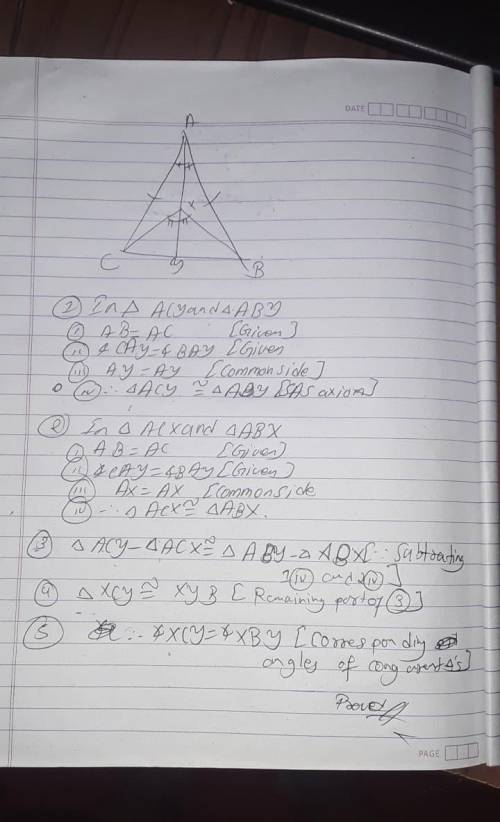 DATE
A
x
C
y
B
① In △ ACY and △ ABY
ⓘ AB = AC [Given]
ⓘⓘ ∡CAY = ∡BAY [Given
ⓘⓘⓘ AY = AY [Common side]
ⓘⓥ ∴ △ACY ≅ △ABY [SAS axiom]
② In △ ACX and △ABX
ⓘ AB = AC [Given)
ⓘⓘ ∡CAY = ∡BAY [Given)
ⓘⓘⓘ AX = AX [Common side
ⓘⓥ ∴ △ ACX ≅ △ABX.
③ △ ACY - △ACX ≅ △ ABY - △ ABX [∵ Subtracting
1 ⓘⓥ and 2 ⓘⓥ]
④ △ XCY ≅ XYB [Remaining part of ③]
⑤ ∴ ∡XCY = ∡XBY [Corresponding
angles of congruent △'s]
Proved
PAGE